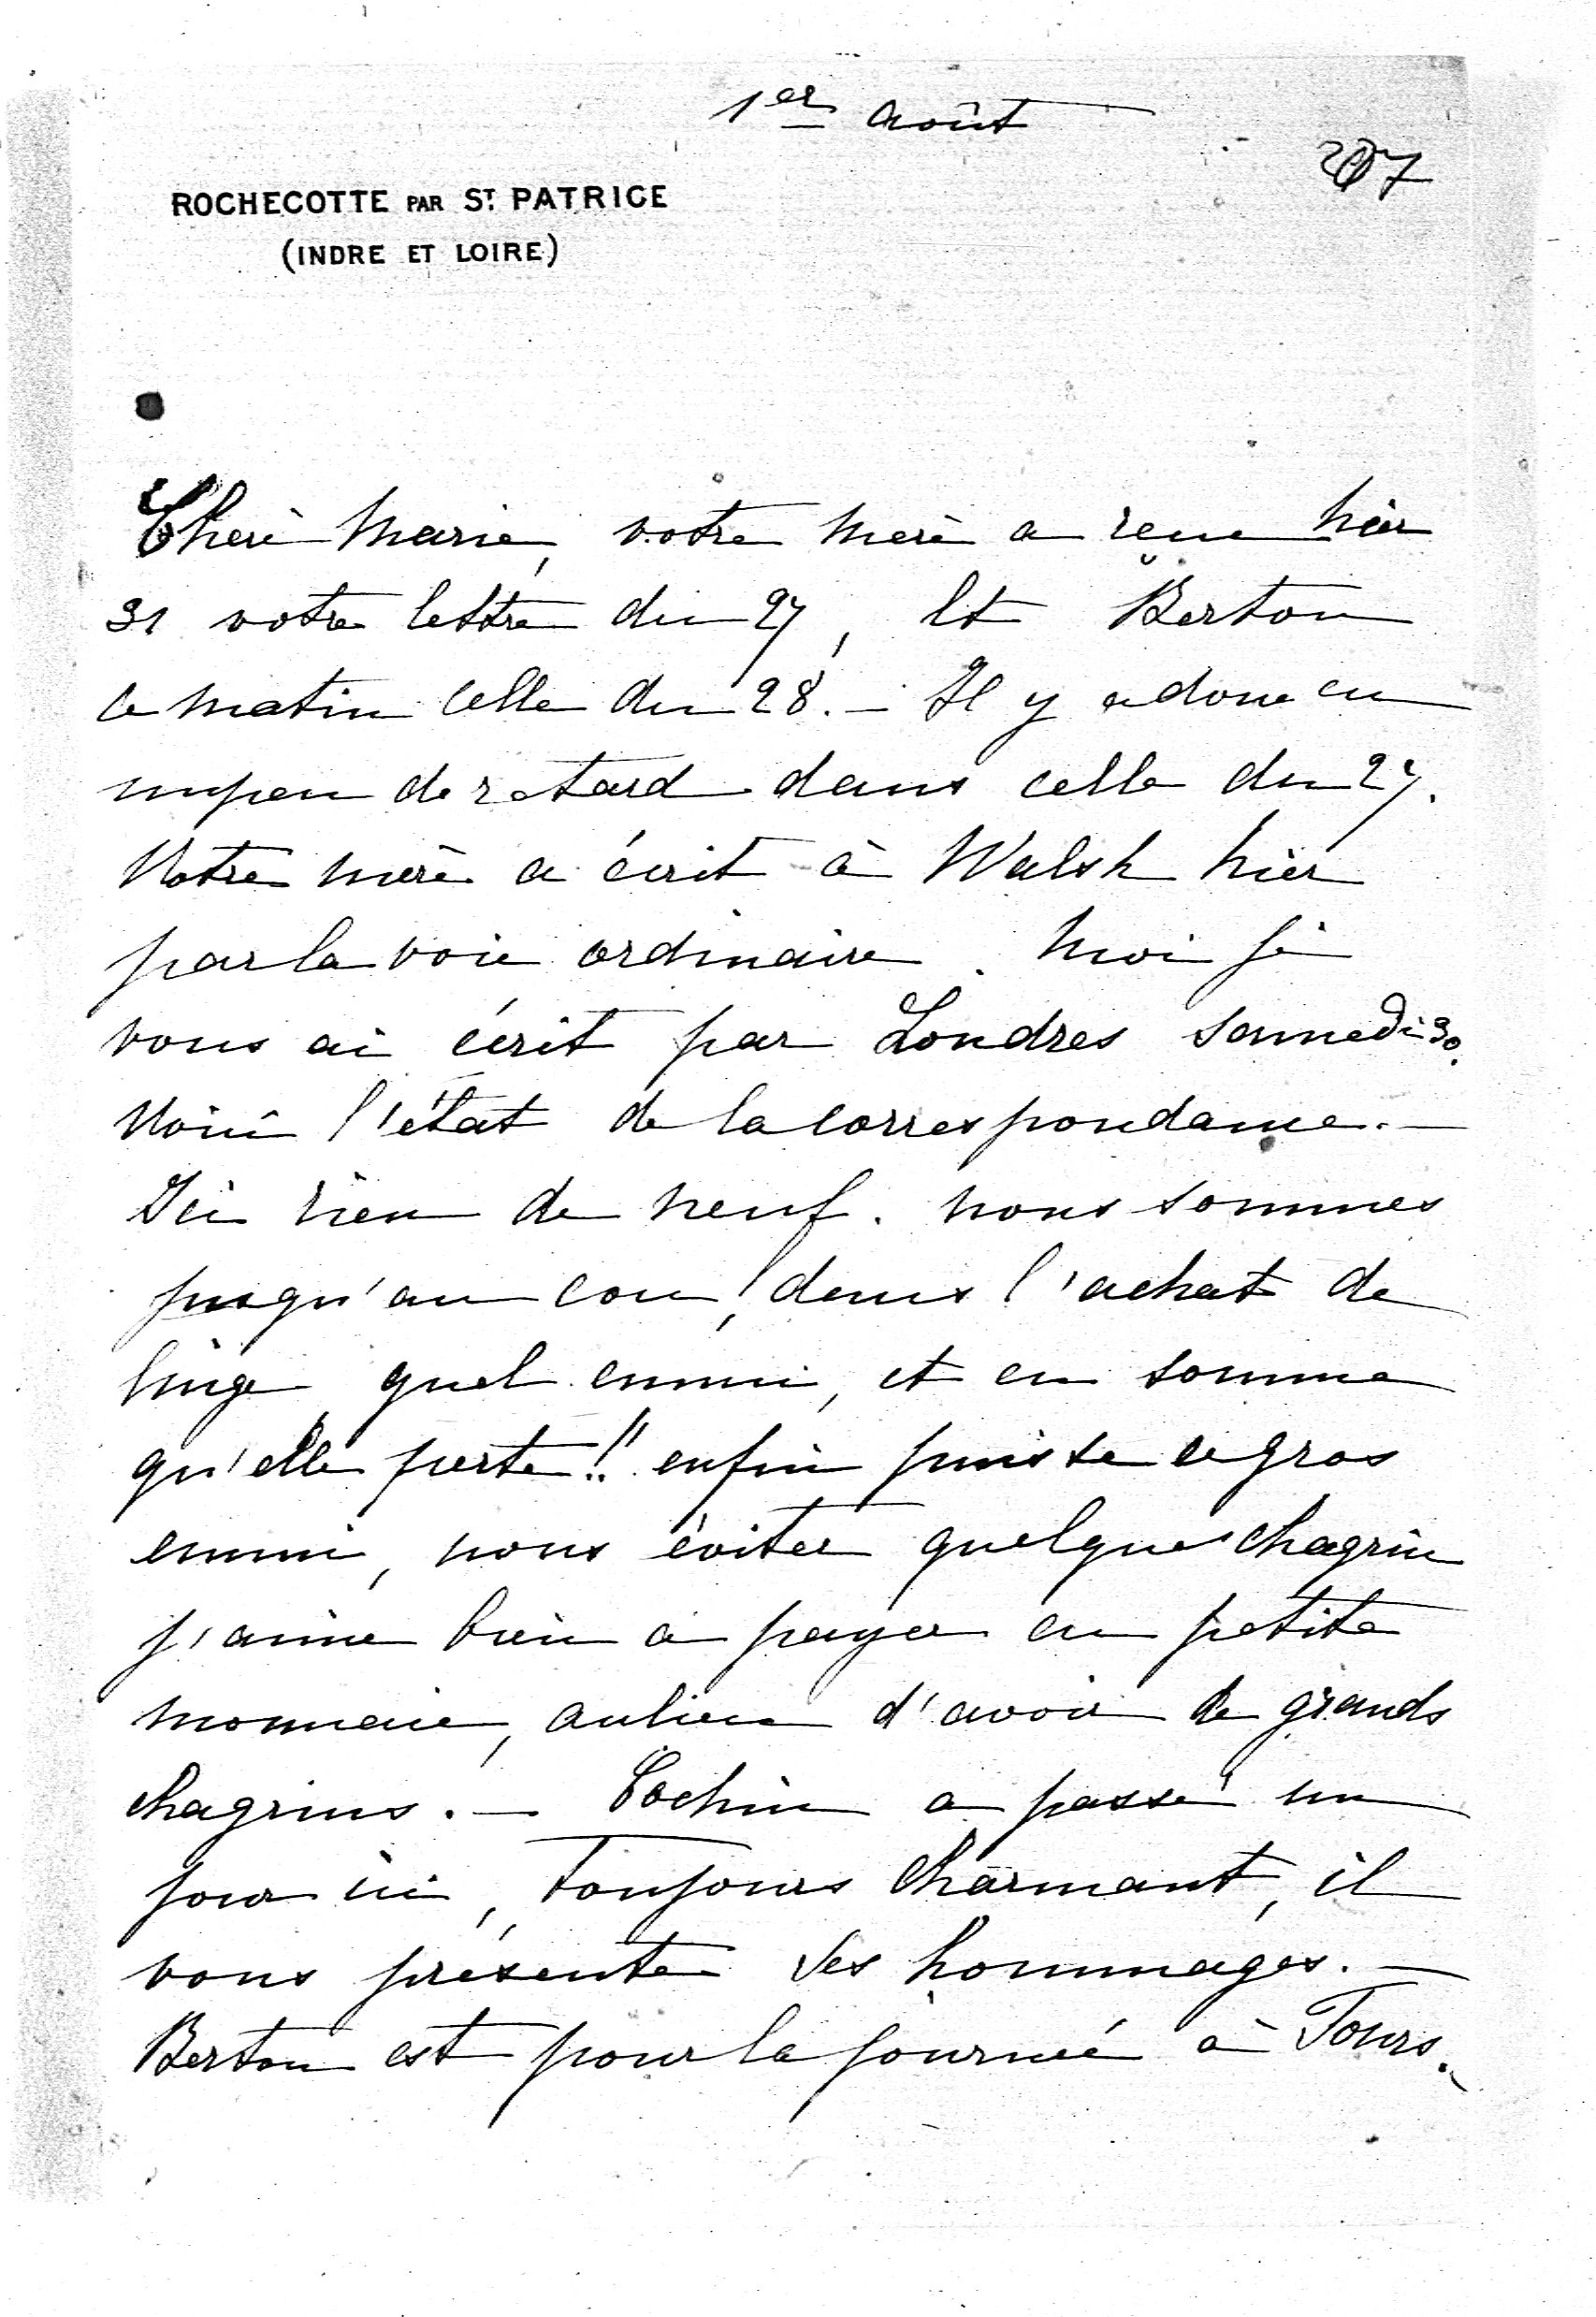 1er août
207
ROCHECOTTE PAR ST. PATRICE
(INDRE ET LOIRE)
Chère Marie, votre mère a reçu hier
31 votre lettre du 27, et Berton
ce matin celle du 28. – Il y a donc eu
un peu de retard dans celle du 27.
Votre mère a écrit à Walsh hier
par la voie ordinaire. Moi je
vous ai écrit par Londres samedi 30.
Voici l'état de la correspondance. –
Ici rien de neuf. nous sommes
jusqu'au cou! dans l'achat de
linge, quel ennui, et en somme
qu'elle perte!! enfin puisse ce gros
ennui, nous éviter quelque chagrin
j'aime bien à payer en petite
monnaie, au lieu d'avoir de grands
chagrins. – Cochin a passé un
jour ici, toujours charmant, il
vous présente ses hommages. –
Berton est pour la journée à Tours.